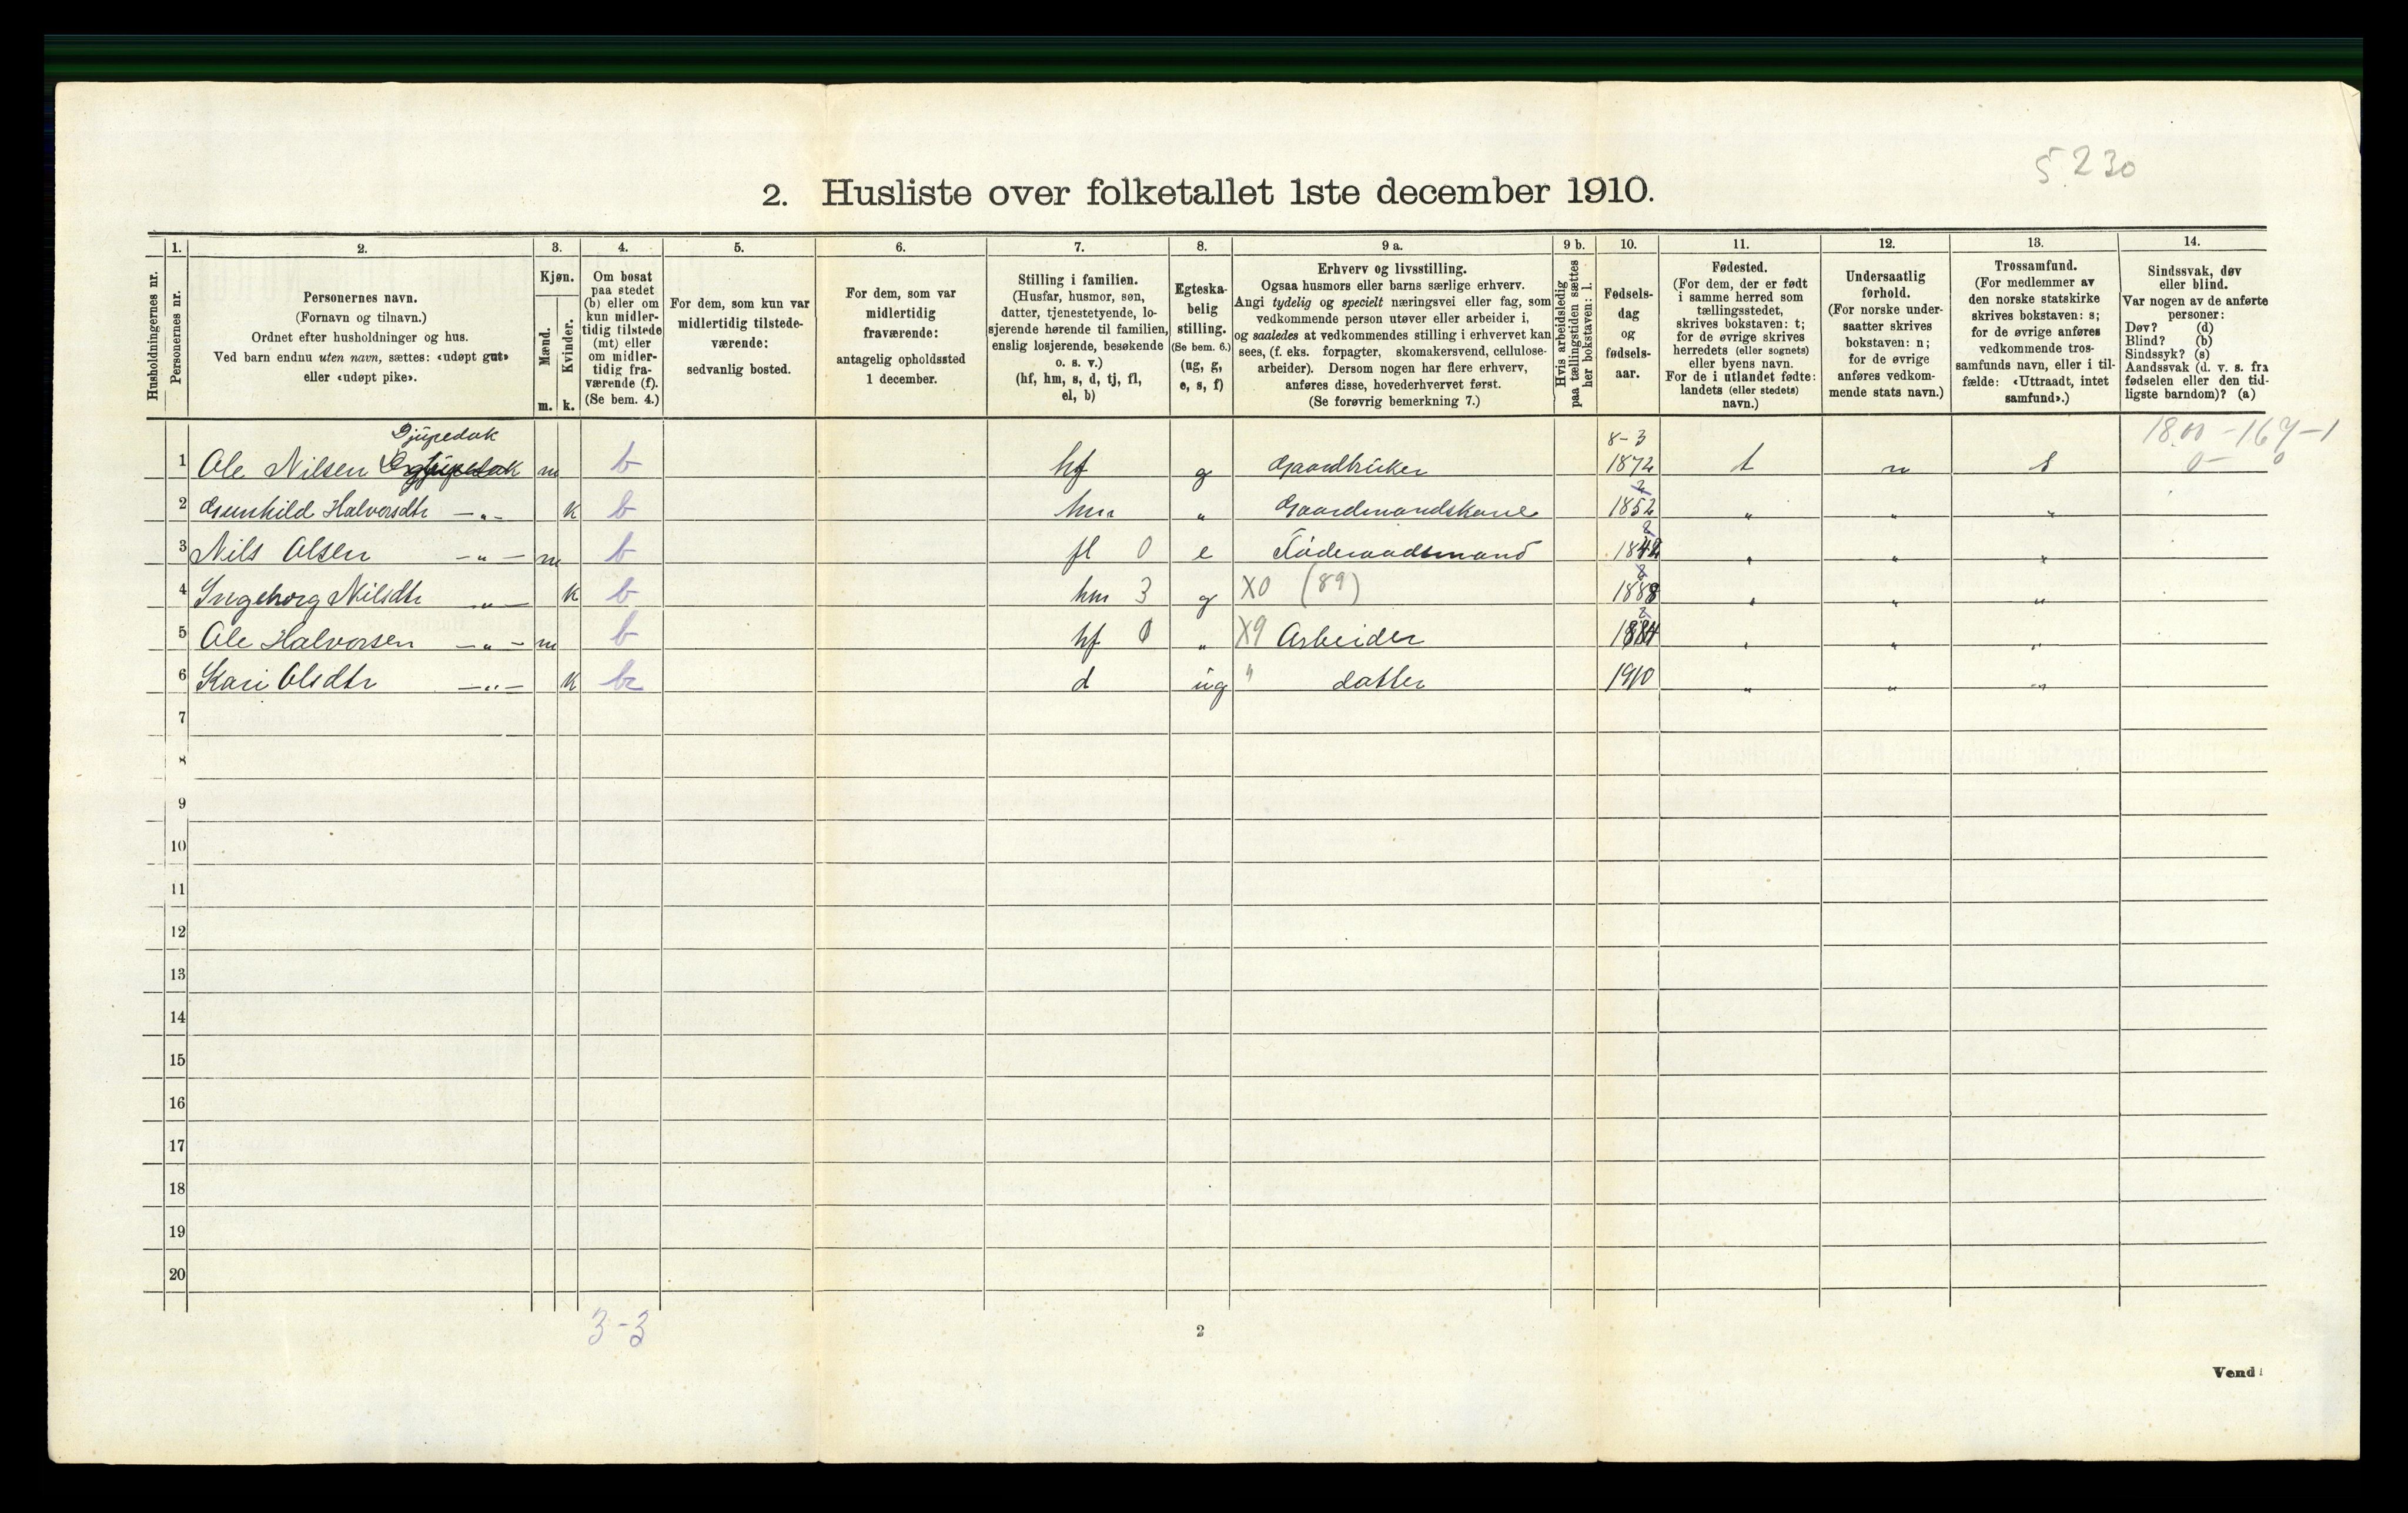 5230
2. Husliste over folketallet 1ste december 1910.
Husholdningernes nr.
1.
Personernes nr.
2.
Personernes navn.
(Fornavn og tilnavn.)
Ordnet efter husholdninger og hus.
Ved barn endnu uten navn, sættes: «udøpt gut»
eller «udøpt pike».
3.
Kjøn.
Mænd.
m.
Kvinder.
k.
4.
Om bosat
paa stedet
(b) eller om
kun midler-
tidig tilstede
(mt) eller
om midler-
tidig fra-
værende (f).
(Se bem. 4.)
5.
For dem, som kun var
midlertidig tilstede-
værende:
sedvanlig bosted.
6.
For dem, som var
midlertidig
fraværende:
antagelig opholdssted
1 december.
7.
Stilling i familien.
(Husfar, husmor, søn,
datter, tjenestetyende, lo-
sjerende hørende til familien,
enslig losjerende, besøkende
o. s. v.)
(hf, hm, s, d, tj, fl,
el, b)
8.
Egteska-
belig
stilling.
(Se bem. 6.)
(ug, g,
e, s, f)
9 a.
Erhverv og livsstilling.
Ogsaa husmors eller barns særlige erhverv.
Angi tydelig og specielt næringsvei eller fag, som
vedkommende person utøver eller arbeider i,
og saaledes at vedkommendes stilling i erhvervet kan
sees, (f. eks. forpagter, skomakersvend, cellulose-
arbeider). Dersom nogen har flere erhverv,
anføres disse, hovederhvervet først.
(Se forøvrig bemerkning 7.)
9 b.
Hvis arbeidsledig
paa tællingstiden sættes
her bokstaven: l.
10.
Fødsels-
dag
og
fødsels-
aar.
11.
Fødested.
(For dem, der er født
i samme herred som
tællingsstedet,
skrives bokstaven: t;
for de øvrige skrives
herredets (eller sognets)
eller byens navn.
For de i utlandet fødte:
landets (eller stedets)
navn.)
12.
Undersaatlig
forhold.
(For norske under-
saatter skrives
bokstaven: n;
for de øvrige
anføres vedkom-
mende stats navn.)
13.
Trossamfund.
(For medlemmer av
den norske statskirke
skrives bokstaven: s;
for de øvrige anføres
vedkommende tros-
samfunds navn, eller i til-
fælde: «Uttraadt, intet
samfund».)
14.
Sindssvak, døv
eller blind.
Var nogen av de anførte
personer:
Døv? (d)
Blind? (b)
Sindssyk? (s)
Aandssvak (d. v. s. fra
fødselen eller den tid-
ligste barndom)? (a)
Djupedak 8-3 18.00-167-1
1 Ole Nilsen m b hf g Gaardbruker 1872 t n s 0- 0
2 Gunhild Halvorsdtr —„— k b hm „ Gaardmandskone 1852 „ „ „
3 Nils Olsen —„— m b fl 0 e Föderaadsmand 1842 „ „ „
4 Ingeborg Nilsdtr —„— k b hm 3 g X0 (89) 1888 „ „ „
5 Ole Halvorsen —„— m b hf 0 „ X9 Arbeider 1884 „ „ „
6 Kari Olsdtr —„— k b d ug " datter 1910 „ „ „
7
8
9
10
11
12
13
14
15
16
17
18
19
20
3-3
2
Vend!